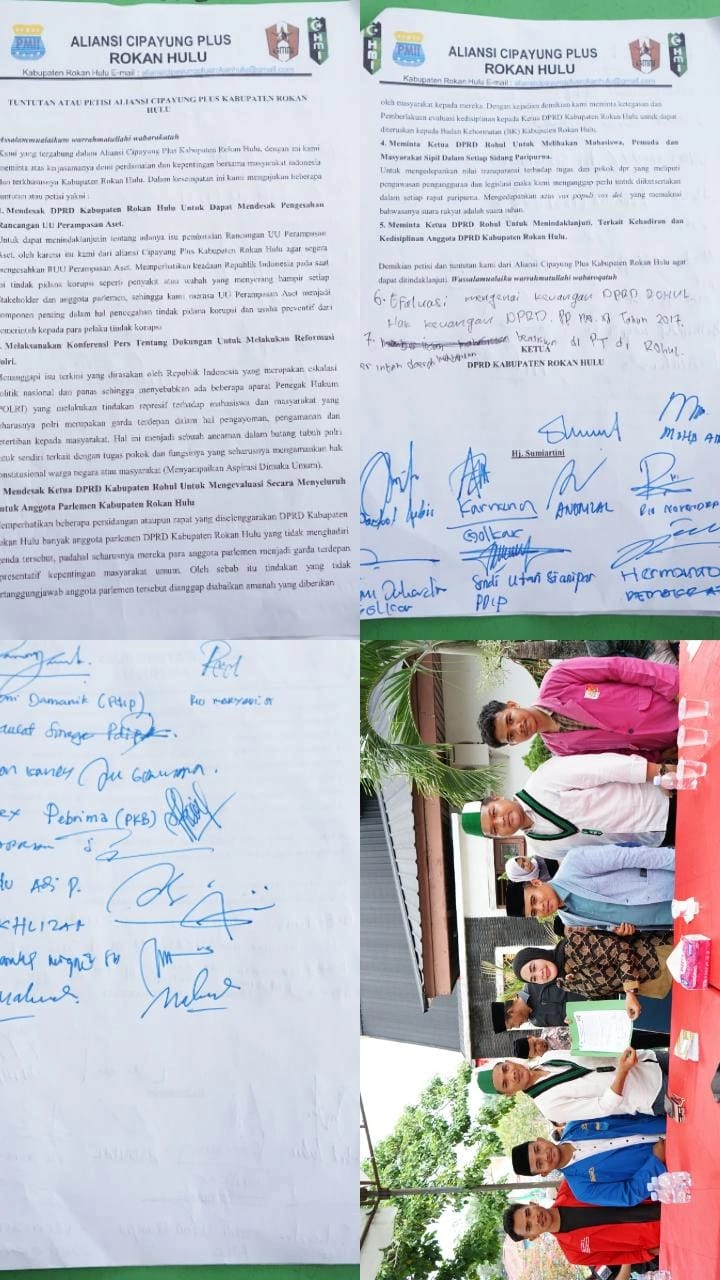 ALIANSI CIPAYUNG PLUS
ROKAN HULU
Kabupaten Rokan Hulu E-mail : aliansicipayungplusrokanhulu@gmail.com
TUNTUTAN ATAU PETISI ALIANSI CIPAYUNG PLUS KABUPATEN ROKAN
HULU
Assalammualaikum warrahmatullahi wabarakatuh
Kami yang tergabung dalam Aliansi Cipayung Plus Kabupaten Rokan Hulu, dengan ini kami
meminta atas kerjasamanya demi perdamaian dan kepentingan bersama masyarakat indonesia
dan terkhususnya Kabupaten Rokan Hulu. Dalam kesempatan ini kami mengajukan beberapa
tuntutan atau petisi yakni :
1. Mendesak DPRD Kabupaten Rokan Hulu Untuk Dapat Mendesak Pengesahan
Rancangan UU Perampasan Aset.
Untuk dapat menindaklanjutin tentang adanya isu pembatalan Rancangan UU Perampasan
Aset, oleh karena itu kami dari aliansi Cipayung Plus Kabupaten Rokan Hulu agar segera
mengesahkan RUU Perampasan Aset. Memperhatikan keadaan Republik Indonesia pada saat
ini tindak pidana korupsi seperti penyakit atau wabah yang menyerang hampir setiap
Stakeholder dan anggota parlemen, sehingga kami merasa UU Perampasan Aset menjadi
komponen penting dalam hal pencegahan tindak pidana korupsi dan usaha preventif dari
pemerintah kepada para pelaku tindak korupsi
. Melaksanakan Konferensi Pers Tentang Dukungan Untuk Melakukan Reformasi
Polri.
Menanggapi isu terkini yang dirasakan oleh Republik Indonesia yang merupakan eskalasi
politik nasional dan panas sehingga menyebabkan ada beberapa aparat Penegak Hukum
(POLRI) yang melakukan tindakan represif terhadap mahasiswa dan masyarakat yang
seharusnya polri merupakan garda terdepan dalam hal pengayoman, pengamanan dan
ketertiban kepada masyarakat. Hal ini menjadi sebuah ancaman dalam batang tubuh polri
untuk sendiri terkait dengan tugas pokok dan fungsinya yang seharusnya mengamankan hak
konstitusional warga negara atau masyarakat (Menyarapaikan Aspirasi Dimuka Umum).
Mendesak Ketua DPRD Kabupaten Rohul Untuk Mengevaluasi Secara Menyeluruh
untuk Anggota Parlemen Kabupaten Rokan Hulu
memperhatikan beberapa persidangan ataupun rapat yang diselenggarakan DPRD Kabupaten
Rokan Hulu banyak anggota parlemen DPRD Kabupaten Rokan Hulu yang tidak menghadiri
agenda tersebut, padahal seharusnya mereka para anggota parlemen menjadi garda terdepan
representatif kepentingan masyarakat umum. Oleh sebab itu tindakan yang tidak
bertanggungjawab anggota parlemen tersebut dianggap diabaikan amanah yang diberikan
PMII
GMNI
HMI
HMI
PMII
GMNI
HMI
ALIANSI CIPAYUNG PLUS
ROKAN HULU
Kabupaten Rokan Hulu E-mail : aliansicipayungplusrokanhulu@gmail.com
oleh masyarakat kepada mereka. Dengan kejadian demikian kami meminta ketegasan dan
Pemberlakuan evaluasi kedisiplinan kepada Ketua DPRD Kabupaten Rokan Hulu untuk dapat
diteruskan kepada Badan Kehormatan (BK) Kabupaten Rokan Hulu.
4. Meminta Ketua DPRD Rohul Untuk Melibatkan Mahasiswa, Pemuda dan
Masyarakat Sipil Dalam Setiap Sidang Paripurna.
Untuk mengedepankan nilai transparansi terhadap tugas dan pokok dpr yang meliputi
pengawasan penganggaran dan legislasi maka kami menganggap perlu untuk diikutsertakan
dalam setiap rapat paripurna. Mengedepankan azas vox populi vox dei yang memaknai
bahwasanya suara rakyat adalah suara tuhan.
5. Meminta Ketua DPRD Rohul Untuk Menindaklanjuti, Terkait Kehadiran dan
Kedisiplinan Anggota DPRD Kabupaten Rokan Hulu.
Demikian petisi dan tuntutan kami dari Aliansi Cipayung Plus Kabupaten Rokan Hulu agar
dapat ditindaklanjuti. Wassalamualaiku warrahmatullahi wabaroqatuh
6. Efaluasi mengenai keuangan DPRD ROHUL
Hak keuangan DPRD. PP No. 18 Tahun 2017
7. di PT di Rohul.
KETUA
DPRD KABUPATEN ROKAN HULU
Hj. Sumiartini
Karmena
Golkar
ANDRIZAL
Golkar
Sindi Utari Sianipar
PDIP
Hermanto
DEMOKRAT
Damanik (Pdip)
Pebrima (PKB)